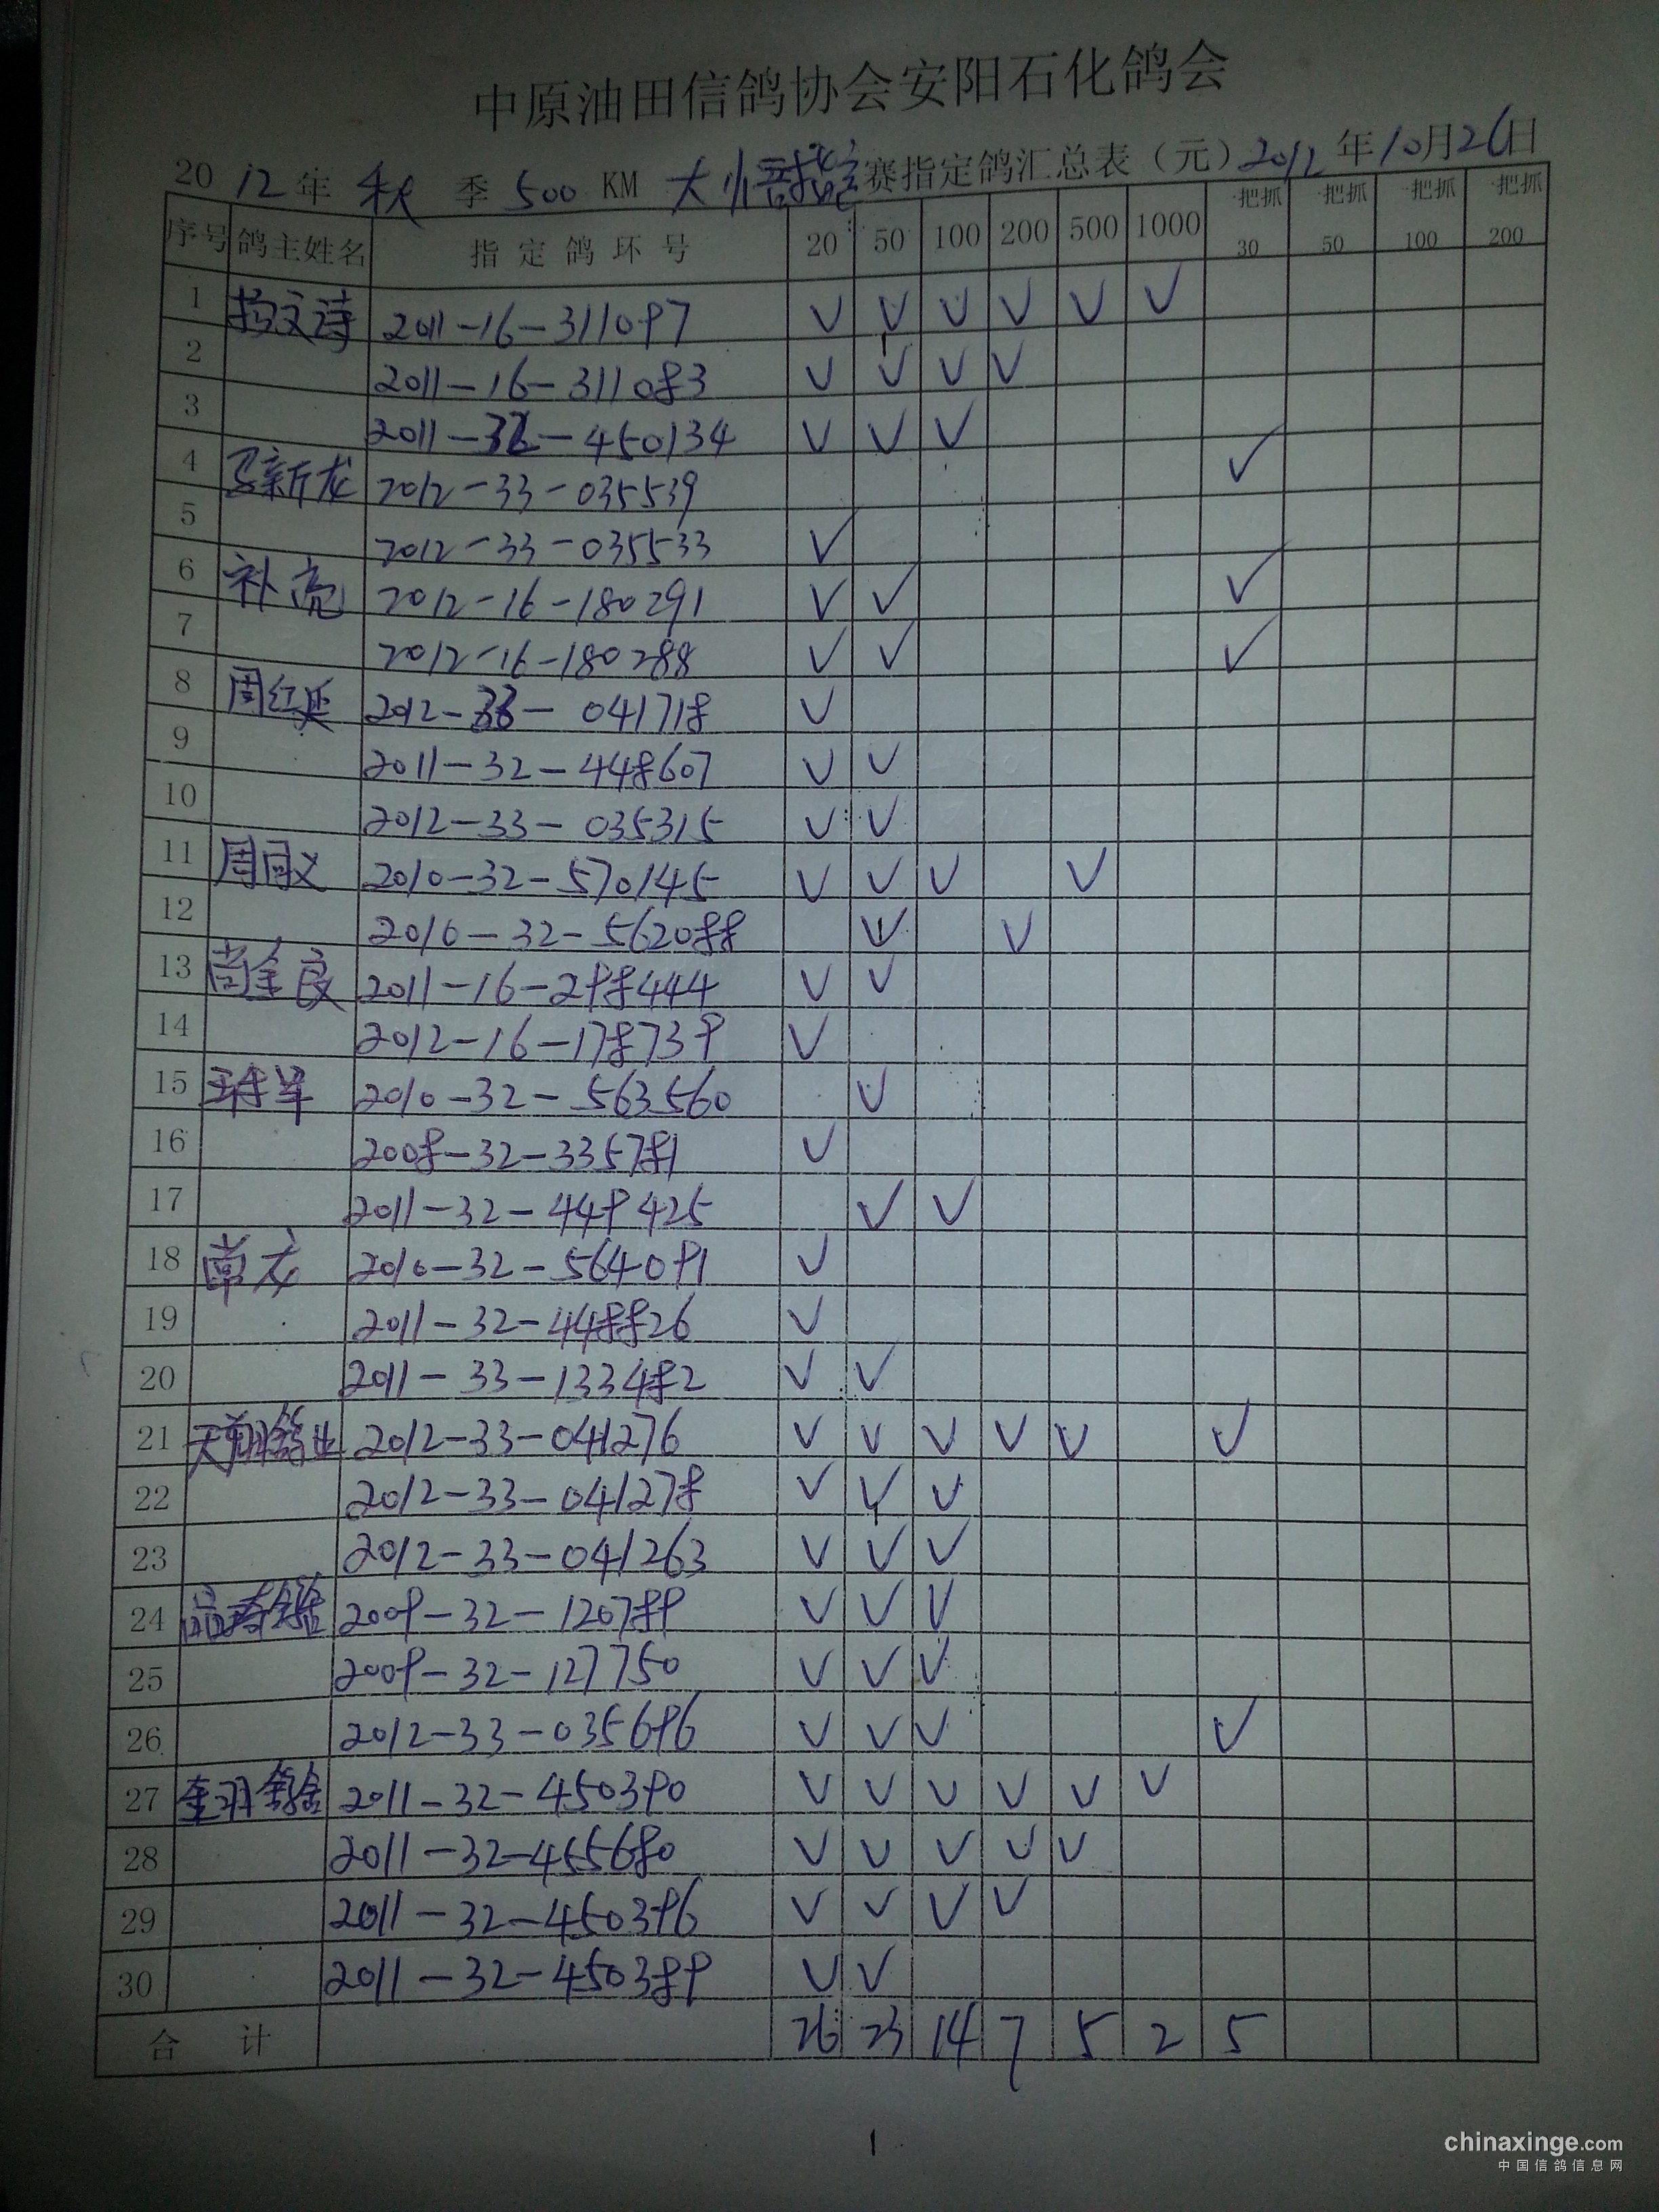 中原油田信鸽协会安阳石化鸽会
20 12 年 秋 季 500 KM 大 赛指定鸽汇总表（元）2012 年 10 月 26 日
序号 鸽主姓名 指定鸽环号 20 50 100 200 500 1000 一把抓 30 一把抓 50 一把抓 100 一把抓 200
1 杨文涛 2011-16-311097 √ √ √ √ √ √
2 2011-16-311083 √ √ √ √
3 2011-32-450134 √ √ √
4 马新龙 2012-33-035539 √
5 2012-33-035533 √
6 补亮 2012-16-180291 √ √ √
7 2012-16-180288 √ √ √
8 周红延 2012-33-041718 √
9 2011-32-448607 √ √
10 2012-33-035315 √ √
11 周同义 2010-32-570145 √ √ √ √
12 2010-32-562088 √ √
13 尚金良 2011-16-298444 √ √
14 2012-16-178739 √
15 2010-32-563560 √
16 2008-32-335781 √
17 2011-32-449425 √ √
18 常龙 2010-32-564091 √
19 2011-32-448826 √
20 2011-33-133482 √ √
21 天翔鸽业 2012-33-041276 √ √ √ √ √ √
22 2012-33-041278 √ √ √
23 2012-33-041263 √ √ √
24 2009-32-120789 √ √ √
25 2009-32-127750 √ √ √
26 2012-33-035696 √ √ √ √
27 2011-32-450390 √ √ √ √ √ √
28 2011-32-455680 √ √ √ √ √
29 2011-32-450396 √ √ √ √
30 2011-32-450389 √ √
合计 26 23 14 7 5 2 5
1
chinaxinge.com
中国信鸽信息网